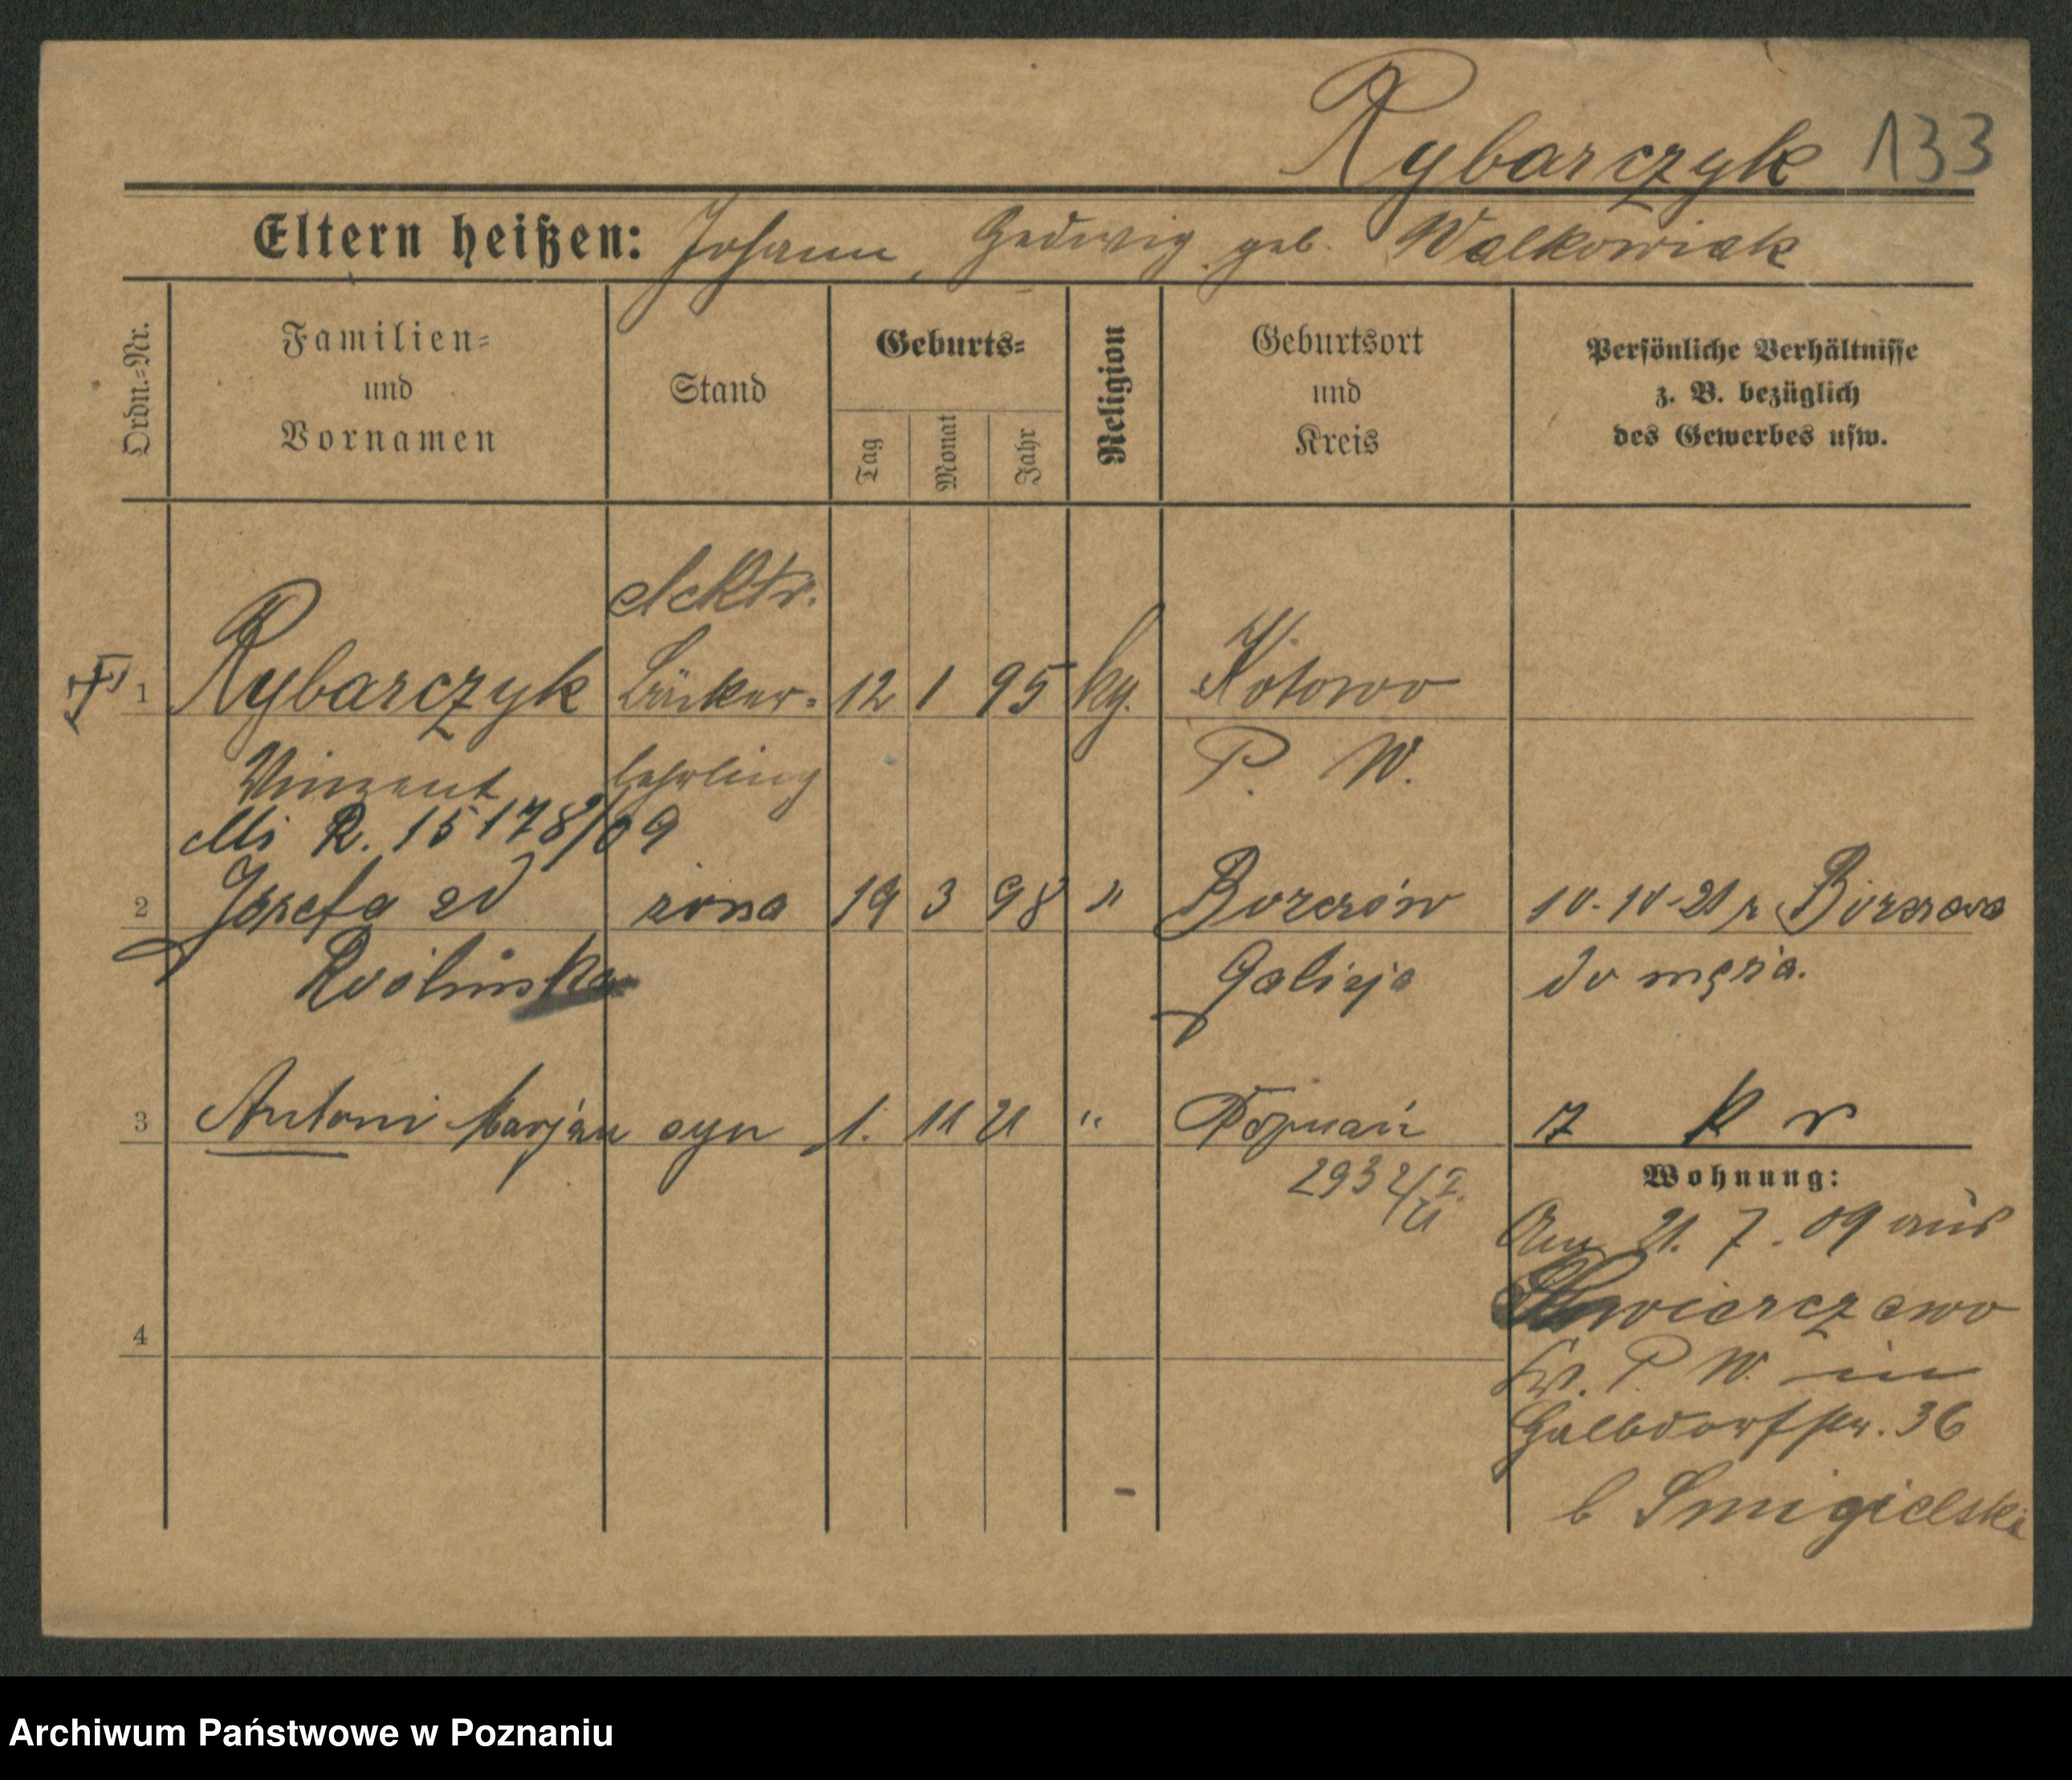 Rybarczyk 133
Eltern heißen: Johann, Hedwig geb. Walkowiak
Ordn.=Nr.
Familien=
und
Vornamen
Stand
Geburts=
Tag
Monat
Jahr
Religion
Geburtsort
und
Kreis
Persönliche Verhältnisse
z. B. bezüglich
des Gewerbes usw.
elektr.
1 Rybarczyk Bäcker= 12 1 95 kg. Kotowo
Vinzent lehrling P. W.
Mi R. 15178/09
2 Józefa zd żona 19 3 98 " Borczów 10.10.21 z
Galicja do męża.
3 Antoni Marjan syn 1. 11 21 " Poznań 17 k r
2932/I.
21
Wohnung:
Am 21. 7. 09 aus
Kr. P. W. in
36
4
b Smigielski
Archiwum Państwowe w Poznaniu